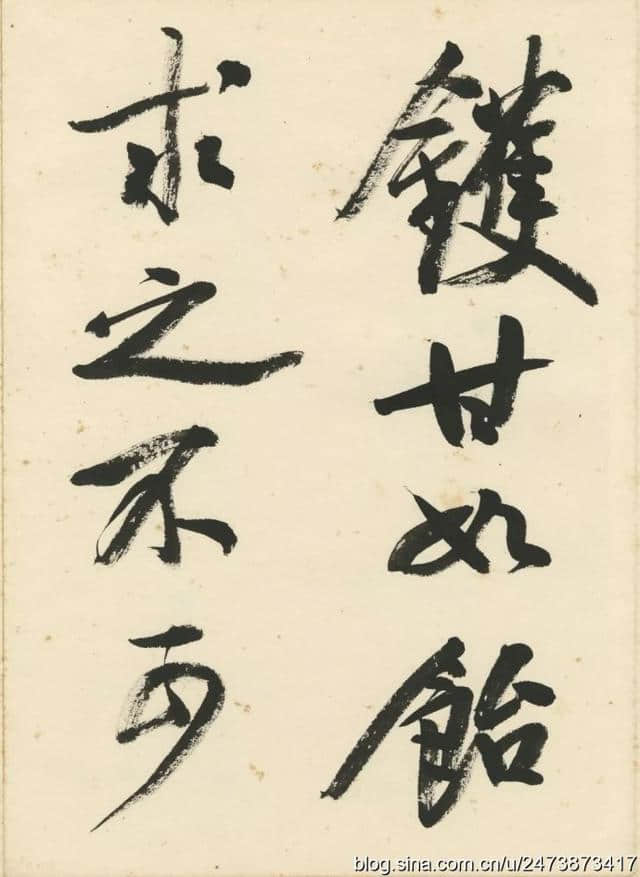 鑊甘如飴
求之不可
blog.sina.com.cn/u/2473873417